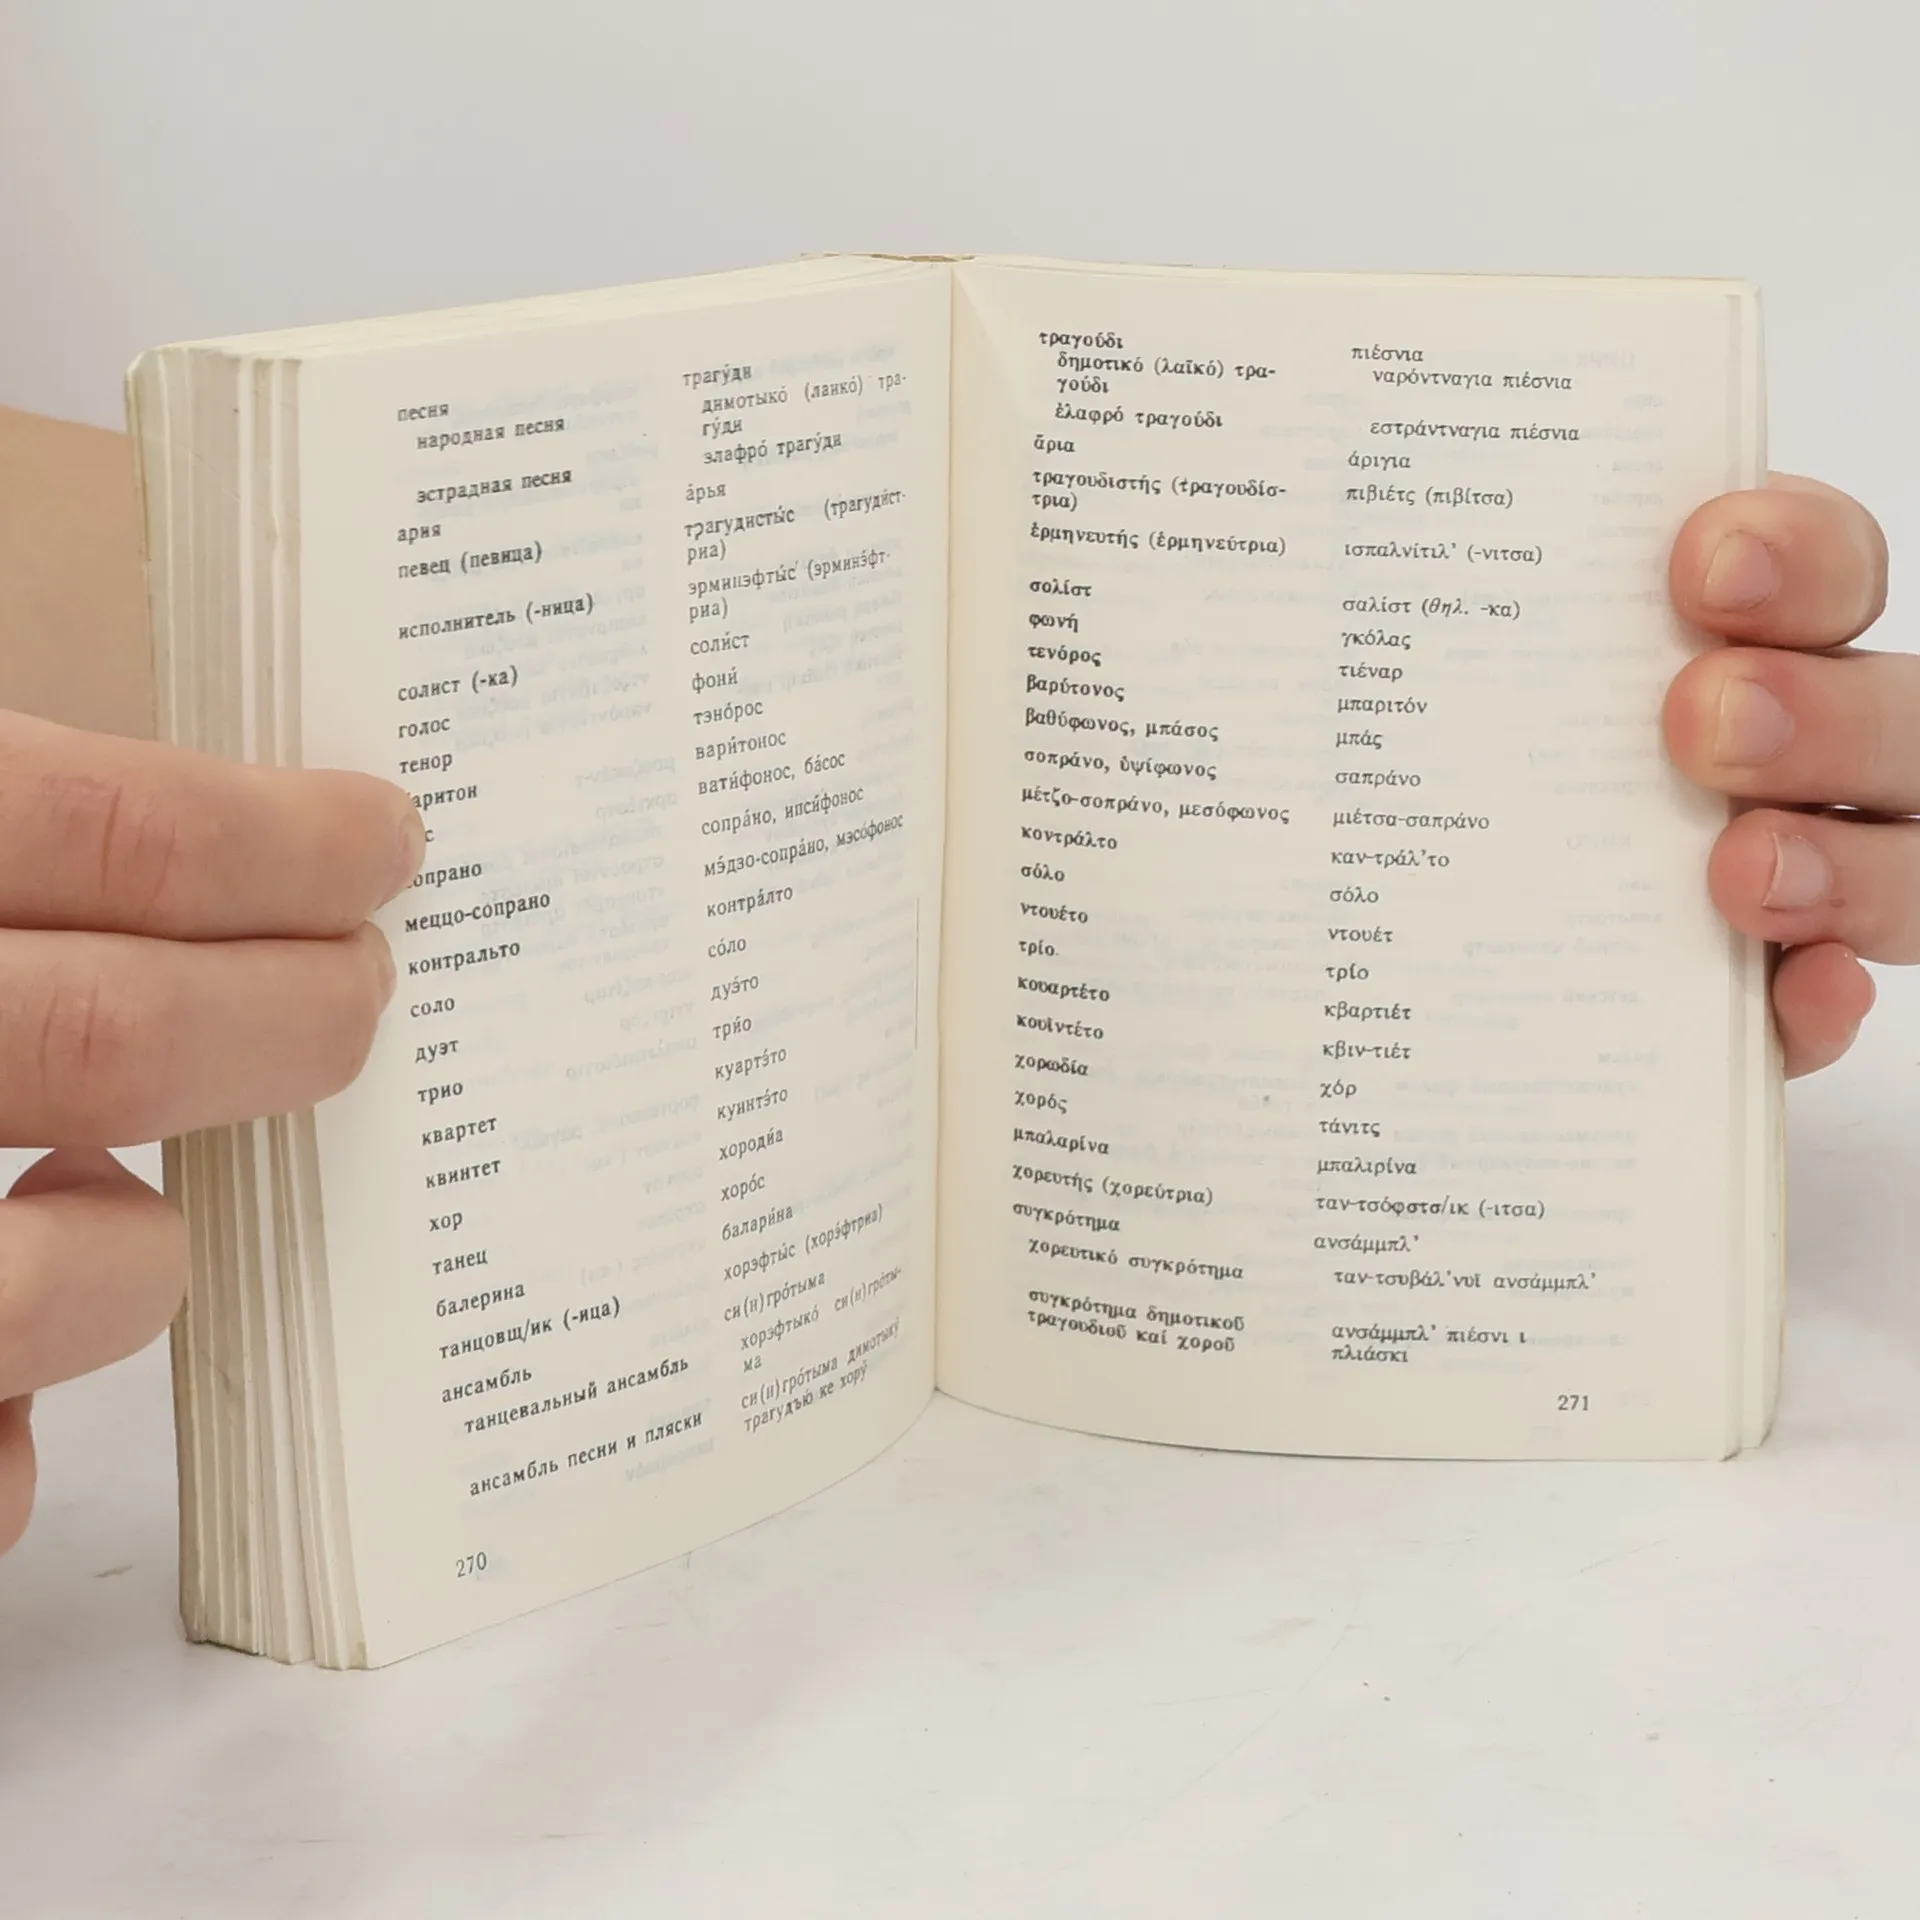 песня
народная песня
эстрадная песня
ария
певец (певица)
исполнитель (-ница)
солист (-ка)
голос
тенор
аритон
с
сопрано
меццо-сопрано
контральто
соло
дуэт
трио
квартет
квинтет
хор
танец
балерина
танцовщ/ик (-ица)
ансамбль
танцевальный ансамбль
ансамбль песни и пляски
270
трагу́ди
димотыко́ (лаико́) тра-
гу́ди
элафро́ трагу́ди
а́рья
трагудисты́с (трагуди́ст-
риа)
эрминэфты́с (эрминэ́фт-
риа)
соли́ст
фони́
тэно́рос
вари́тонос
вати́фонос, ба́сос
сопра́но, ипси́фонос
мэ́дзо-сопра́но, мэсо́фонос
контра́лто
со́ло
дуэ́то
три́о
куартэ́то
куинтэ́то
хороди́а
хоро́с
балари́на
хорэфты́с (хорэ́фтриа)
си(н)гро́тыма
хорэфтыко́ си(н)гро́ты-
ма
си(н)гро́тыма димотыку́
трагудью́ ке хору́
τραγούδι
δημοτικό (λαϊκό) τρα-
γούδι
ἐλαφρό τραγούδι
ἄρια
τραγουδιστής (τραγουδίσ-
τρια)
ἑρμηνευτής (ἑρμηνεύτρια)
σολίστ
φωνή
τενόρος
βαρύτονος
βαθύφωνος, μπάσος
σοπράνο, ὑψίφωνος
μέτζο-σοπράνο, μεσόφωνος
κοντράλτο
σόλο
ντουέτο
τρίο
κουαρτέτο
κουϊντέτο
χορωδία
χορός
μπαλαρίνα
χορευτής (χορεύτρια)
συγκρότημα
χορευτικό συγκρότημα
συγκρότημα δημοτικοῦ
τραγουδιοῦ καί χοροῦ
πιέσνια
ναρόντναγια πιέσνια
εστράντναγια πιέσνια
άριγια
πιβιέτς (πιβίτσα)
ισπαλνίτιλ’ (-νιτσα)
σαλίστ (θηλ. -κα)
γκόλας
τιέναρ
μπαριτόν
μπάς
σαπράνο
μιέτσα-σαπράνο
καν-τράλ’το
σόλο
ντουέτ
τρίο
κβαρτιέτ
κβιν-τιέτ
χόρ
τάνιτς
μπαλιρίνα
ταν-τσόφστσ/ικ (-ιτσα)
ανσάμμπλ’
ταν-τσυβάλ’νυϊ ανσάμμπλ’
ανσάμμπλ’ πιέσνι ι
πλιάσκι
271